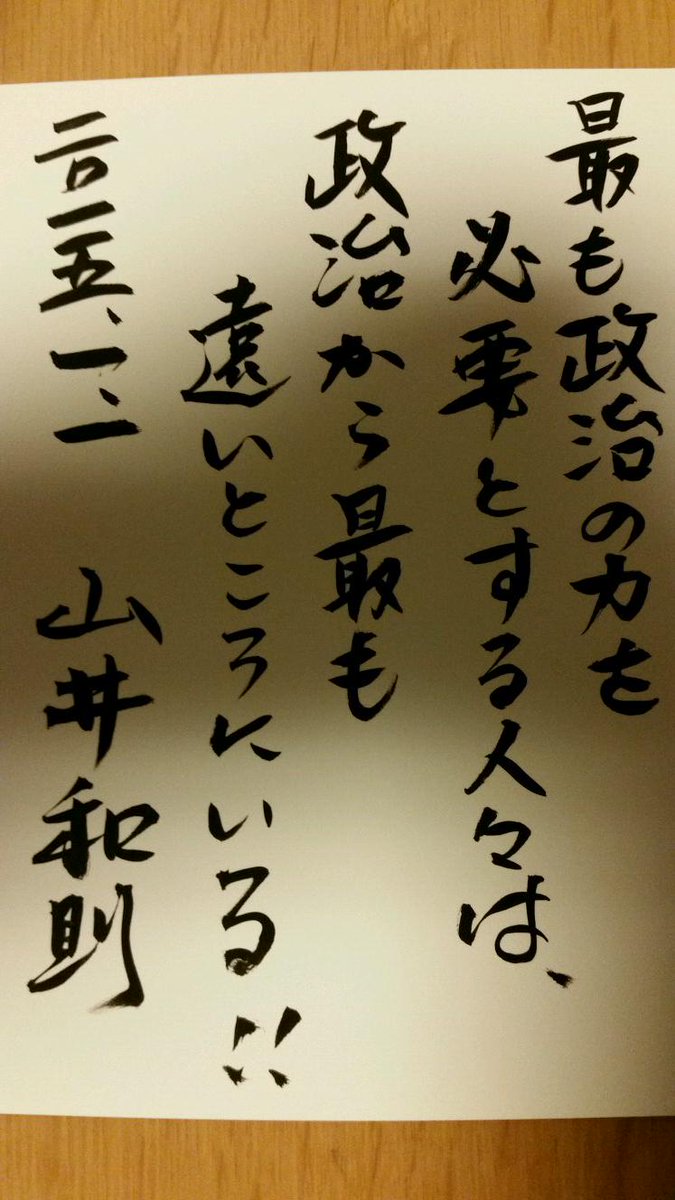 最も政治の力を
必要とする人々は、
政治から最も
遠いところにいる!!
二〇一五、一、一 山井和則